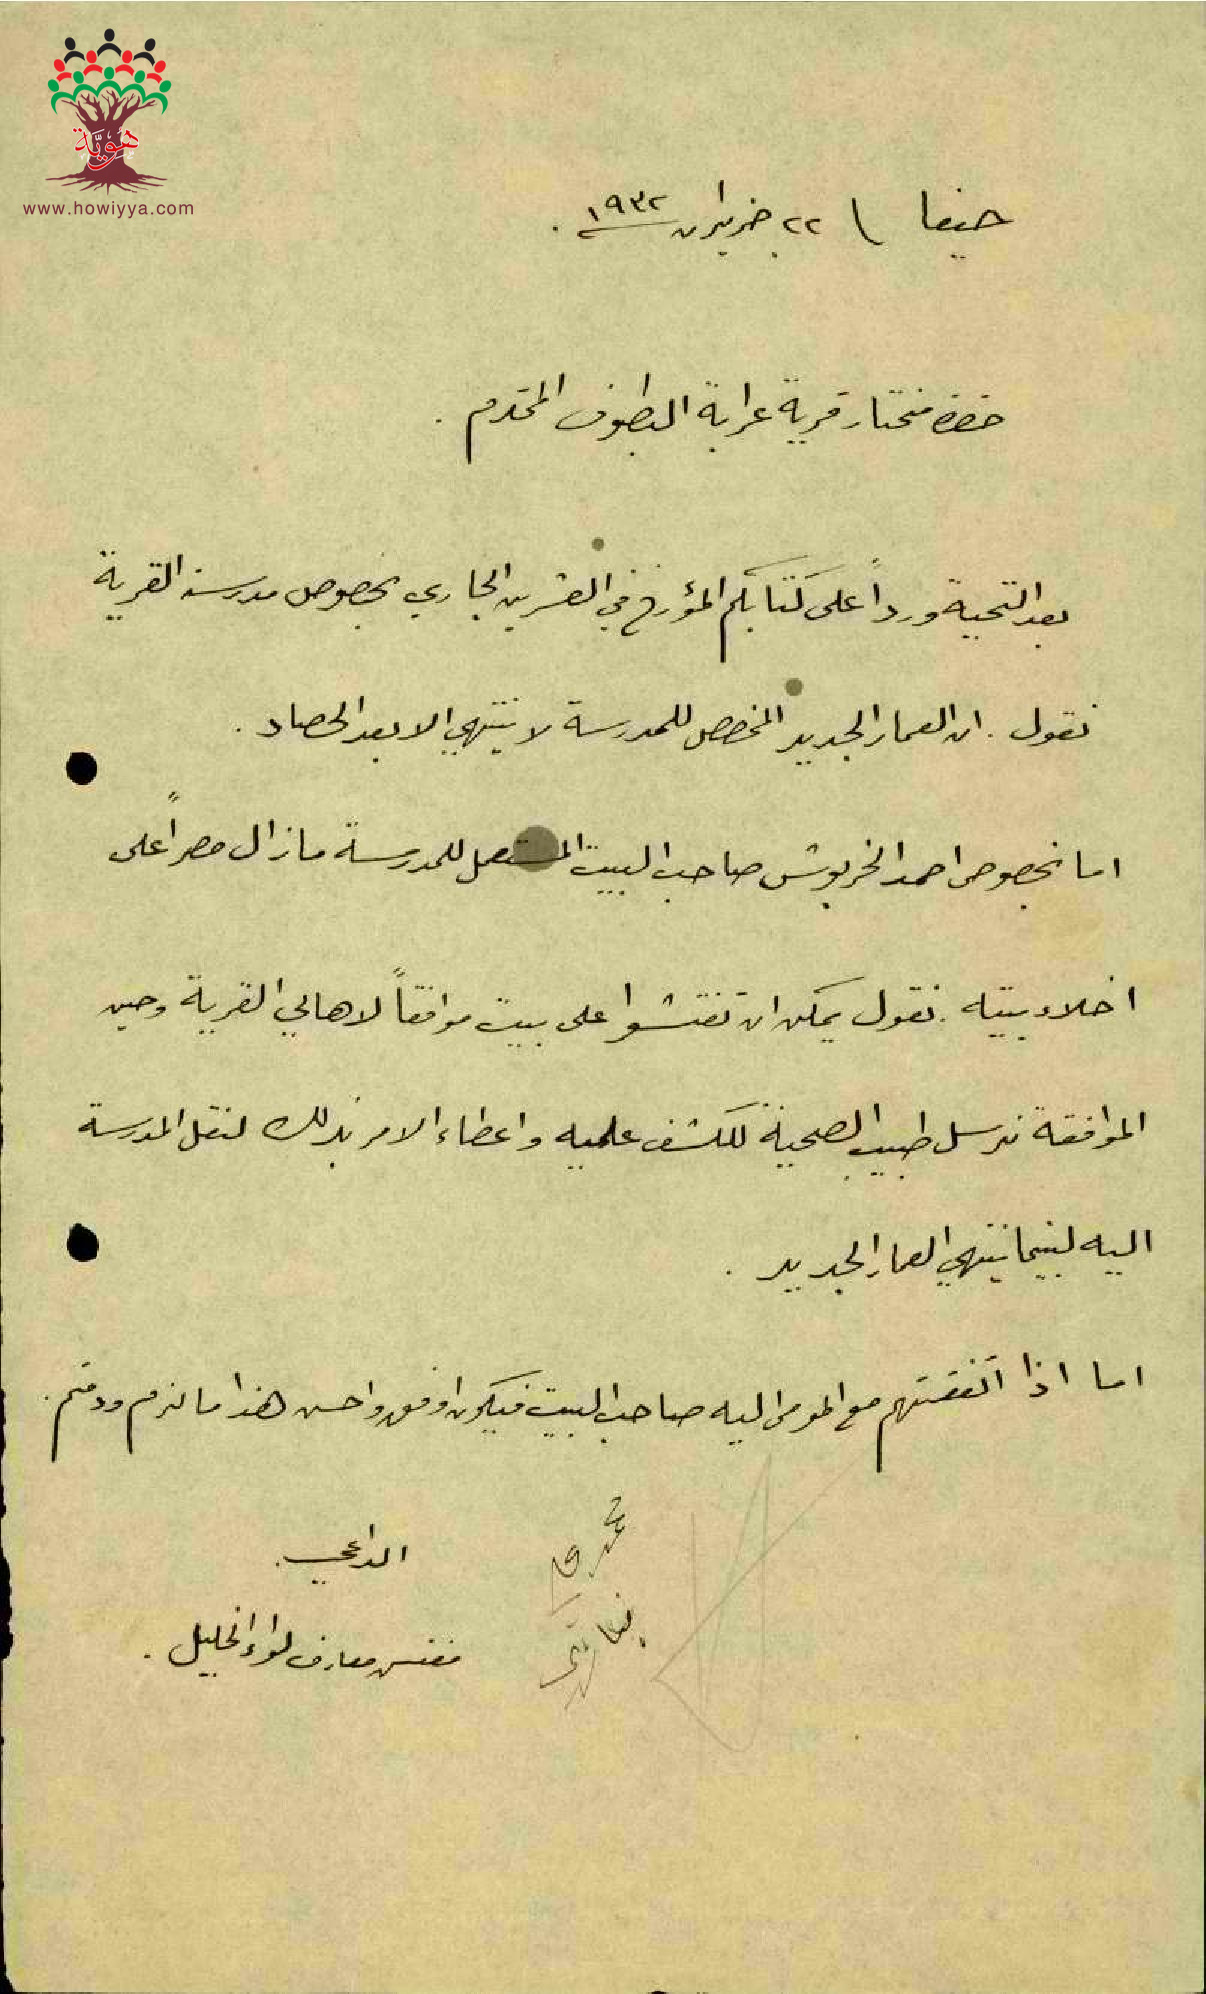 هوية
www.howiyya.com
حيفا \ ٢٢ حزيران ١٩٣٢ .
حضرة مختار قرية عرابة البطوف المحترم .
بعد التحية ورداً على كتابكم المؤرخ في العشرين الجاري بخصوص مدرسة القرية
نقول . ان العمار الجديد المخصص للمدرسة لا ينتهي الا بعد الحصاد .
اما بخصوص احمد الخربوش صاحب البيت المستعمل للمدرسة مازال مصراً على
اخلاء بيته . نقول يمكن ان تفتشوا على بيت موافقاً لاهالي القرية وحين
الموافقة نرسل طبيب الصحية للكشف عليه واعطاء الامر بذلك لنقل المدرسة
اليه لبينما ينتهي العمار الجديد .
اما اذا اتفقتم مع المومى اليه صاحب البيت فيكون اوفق واحسن هذا ما لزم ودمتم .
الداعي .
مفتش معارف لواء الجليل .